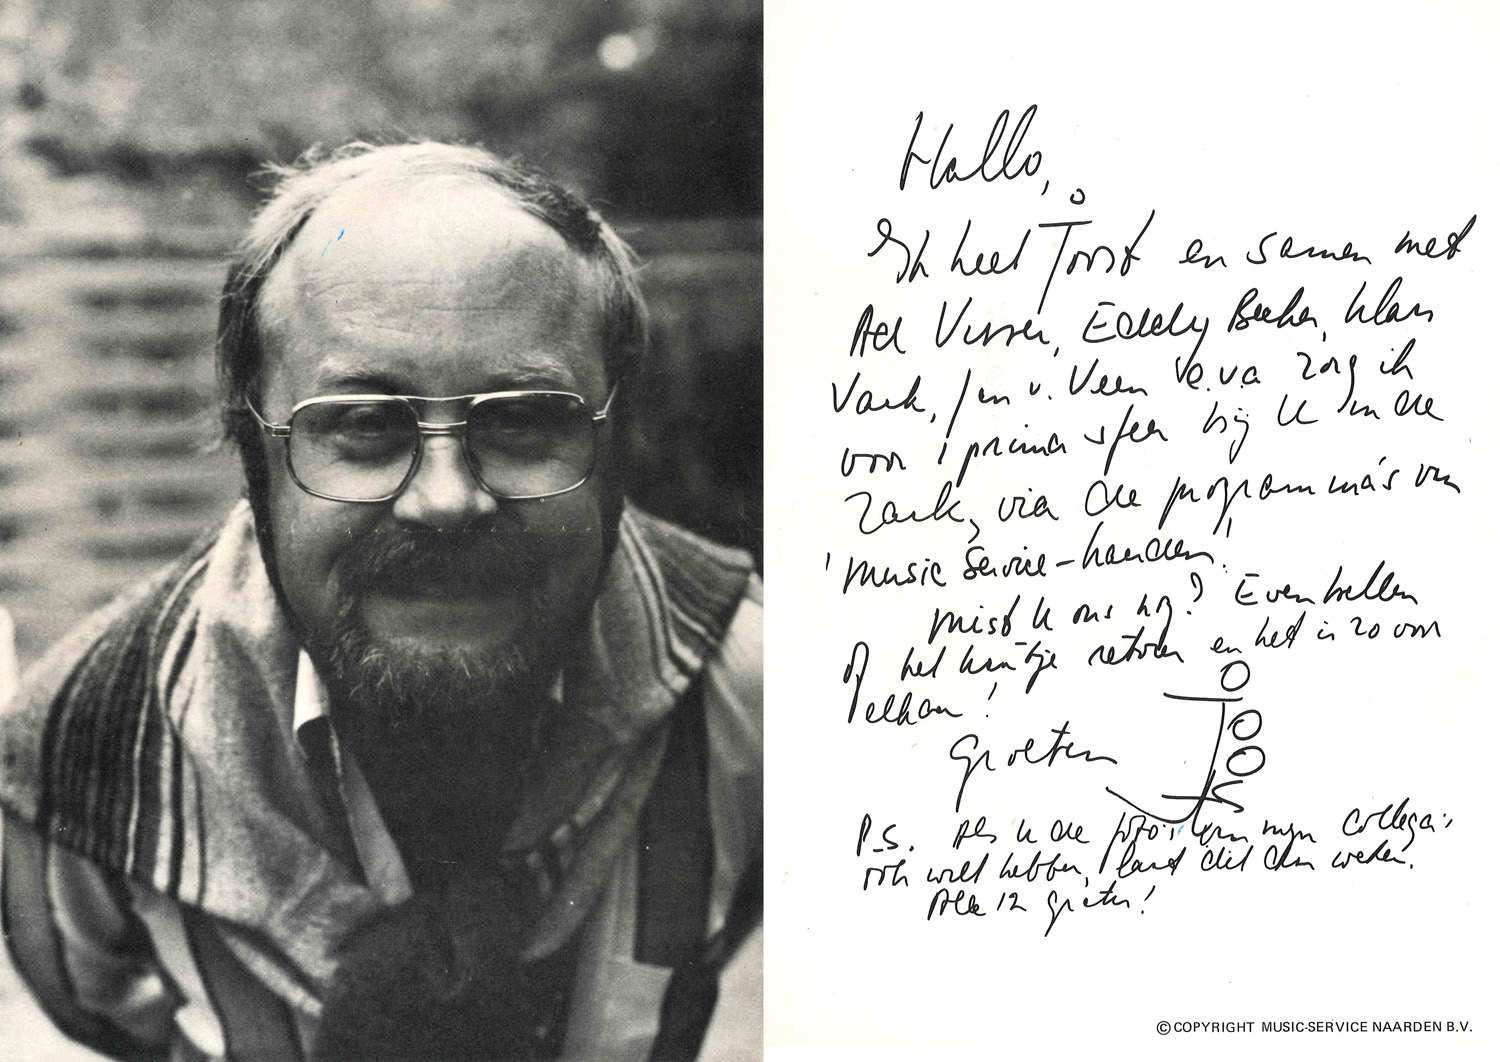 Hallo,
Ik heet Joost en samen met
Ad Visser, Eddy Becker, Klaas
Vaak, Jan v. Veen e.v.a zorg ik
voor 'n prima sfeer bij U in de
zaak, via de programma's van
'Music Service-Naarden'!
Mist U ons nog? Even bellen
of het kaartje retour en het is zo voor
elkaar!
Groeten Joost
P.S. Als U de foto's van mijn collega's
ook wilt hebben, laat dit dan weten.
Alle 12 gratis!
© COPYRIGHT MUSIC-SERVICE NAARDEN B.V.